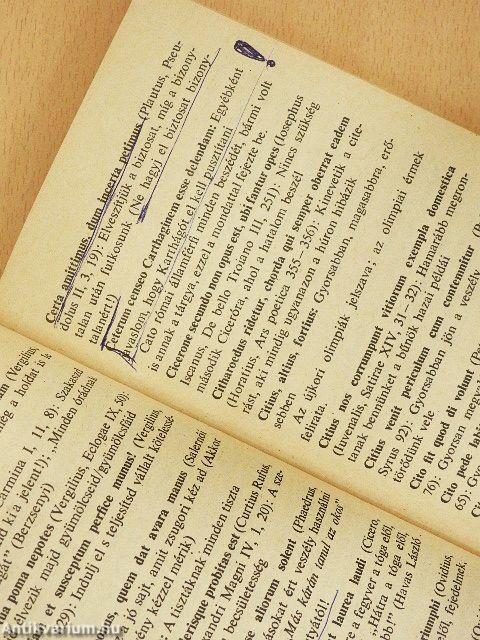 Certa amittimus, dum incerta petimus (Plautus, Pseu-
dolus II, 3, 19): Elveszítjük a biztosat, míg a bizony-
talan után futkosunk (Ne hagyj el biztosat bizony-
talanért!)
Ceterum censeo Carthaginem esse delendam: Egyébként
javaslom, hogy Karthágót el kell pusztítani
Cato római államférfi minden beszédét, bármi volt
is annak a tárgya, ezzel a mondattal fejezte be.
Cicerone secundo non opus est, ubi fantur opes (Iosephus
Iscanus, De bello Troiano III, 251): Nincs szükség
második Ciceróra, ahol a hatalom beszél
Citharoedus ridetur, chorda qui semper oberrat eadem
(Horatius, Ars poetica 355–356): Kinevetik a cite-
rást, aki mindig ugyanazon a húron hibázik
Citius, altius, fortius: Gyorsabban, magasabbra, erő-
sebben
Az újkori olimpiák jelszava; az olimpiai érmek
felirata.
Citius nos corrumpunt vitiorum exempla domestica
(Iuvenalis, Satirae XIV, 31–32): Hamarább megron-
tanak bennünket a bűnök hazai példái
Citius venit periculum cum contemnitur (P
Syrus 92): Gyorsabban jön a veszély
törődünk vele
Cito fit quod di volunt (P
76): Gyorsan megv
Cito pede labi
65): Gy
(Vergilius,
még a holdat is le
Carmina I, 11, 8): Szakaszd
ad ki a jelent!); „Minden órádnak
(Berzsenyi)
poma nepotes (Vergilius, Eclogae IX, 50):
élvezik majd gyümölcseid/gyümölcsfáid
et susceptum perfice munus! (Vergilius,
Indulj el, s teljesítsd vállalt kötelessé-
quem dat avara manus (Salernói
jó sajt, amit zsugori kéz ad (Akkor
kézzel mérik)
probitas est (Curtius Rufus,
Magni IV, 1, 20): A sze-
A tisztáknak minden tiszta
aliorum solent (Phaedrus,
ért veszély használni
Más kárán tanul az okos"
laurea laudi (Cicero,
a fegyver a tóga elől,
Hátra a tóga elől,
(Havas László
(Ovidius,
Antikvarium.hu